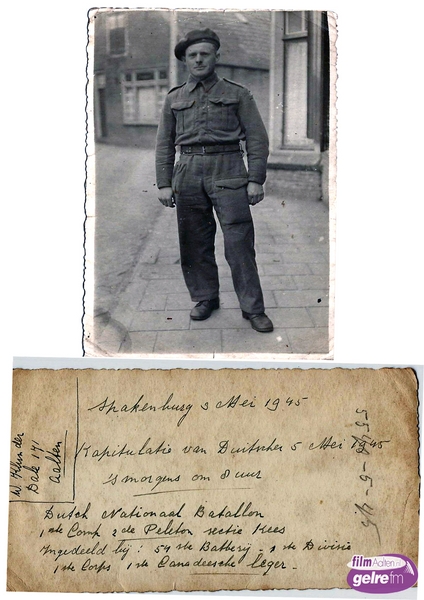 Spakenburg 3 Mei 1945
Kapitulatie van Duitscher 5 Mei 1945
's morgens om 8 uur
W. Klunder
Dale 171
Aalten
Dutch Nationaal Batallon
1ste Comp 2de Peleton sectie Kees
Ingedeeld bij: 54ste Batterij - 1ste Divisie
1ste Corps 1ste Canadeesche leger.
filmAalten.nl
gelrefm